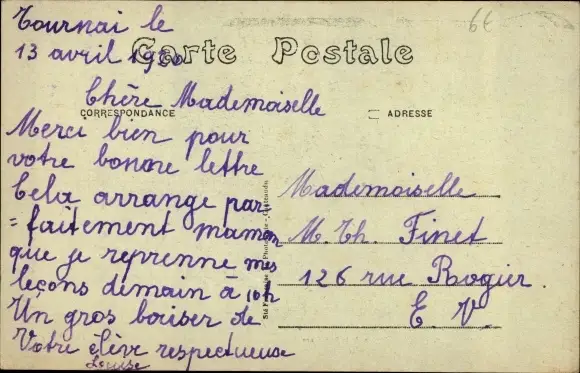 Tournai le
13 avril 1920
6€
Carte Postale
Chère Mademoiselle
CORRESPONDANCE
ADRESSE
Merci bien pour
votre bonne lettre
Cela arrange par
= faitement maman
que je reprenne mes
leçons demain à 10h
Un gros baiser de
Votre élève respectueuse
Louise
Mademoiselle
M. Th. Finet
126 rue Rogier.
E. V.